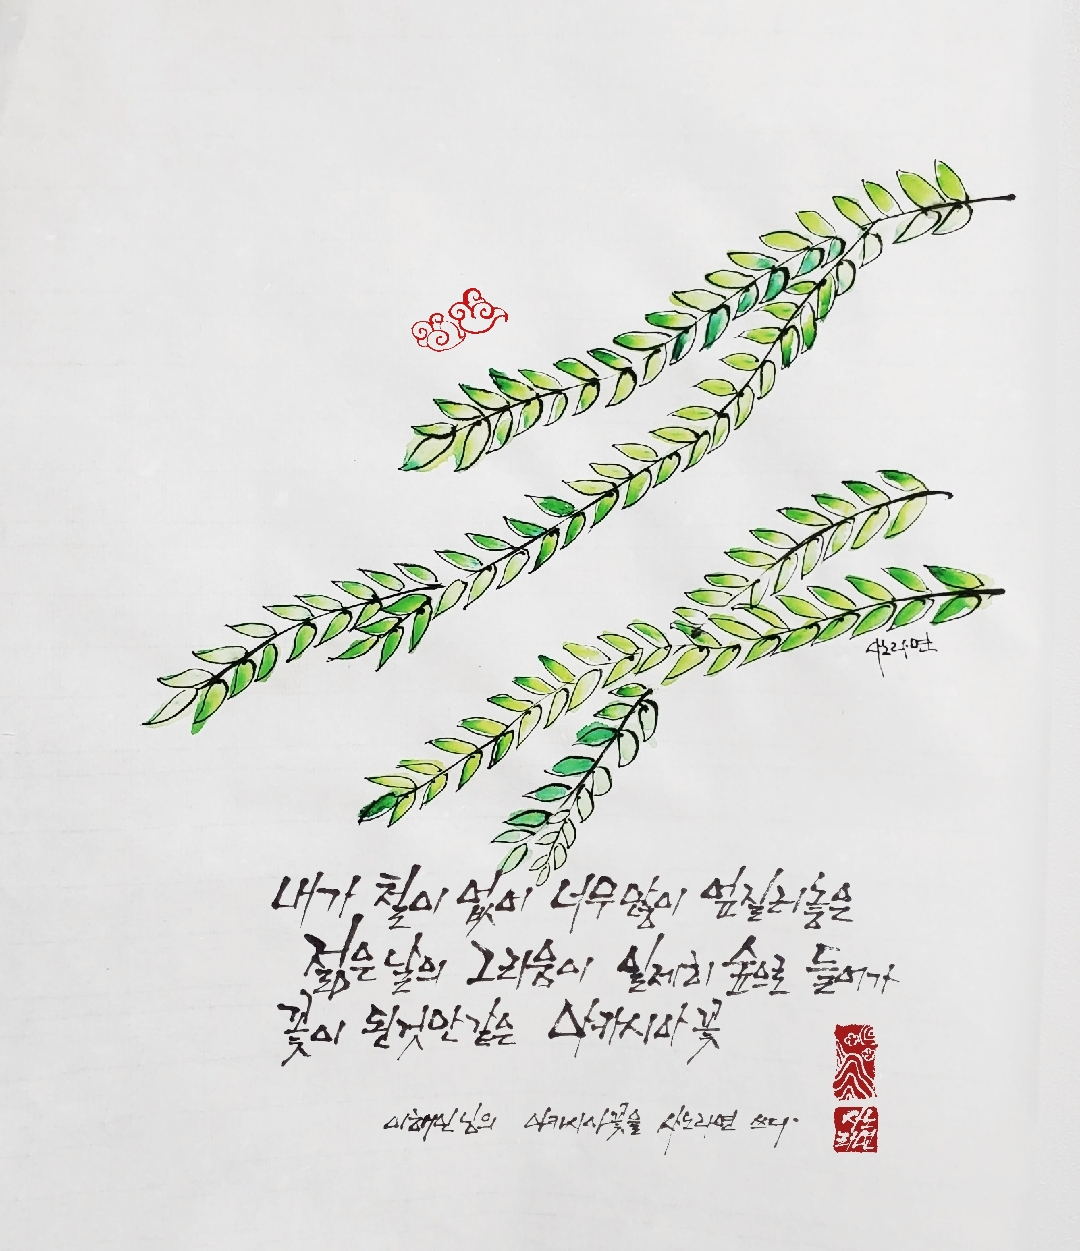 사노라면
내가 철이 없이 너무 많이 엎질러놓은
젊은 날의 그리움이 일제히 숲으로 들어가
꽃이 된것만 같은 아카시아 꽃
이해인님의 아카시아꽃을 사노라면 쓰다.
사노라면